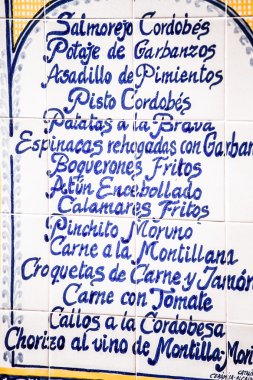 Salmorejo Cordobés
Potaje de Garbanzos
Asadillo de Pimientos
Pisto Cordobés
Patatas a la Brava
Espinacas rehogadas con Garban
Boquerones Fritos
Atún Encebollado
Calamares Fritos
Pinchito Moruno
Carne a la Montillana
Croquetas de Carne y Jamón
Carne con Tomate
Callos a la Cordobesa
Chorizo al vino de Montilla-Mori